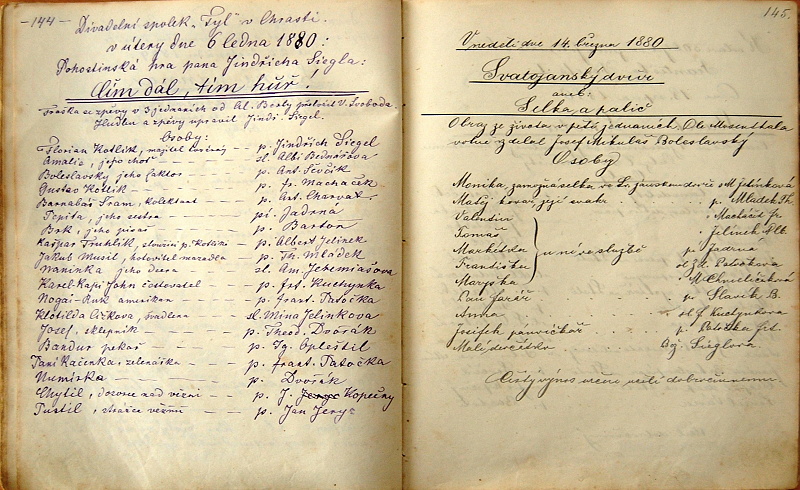 -144-
Divadelní spolek „Tyl“ v Chrasti.
v úterý dne 6 ledna 1880:
Pohostinská hra pana Jindřicha Siegla:
Čím dál, tím hůř!
Fraška se zpěvy v 3 jednáních od Al. Berly přeložil V. Svoboda.
Hudbu a zpěvy upravil Jindř. Siegel.
Osoby:
Florian Kotlik, majitel - p. Jindřich Siegel
Amalie, jeho choť - sl. Albi Bednářova
Boleslavský jeho faktor - p. Ant. Ševčik
Gustav Kotlik - p. fr. Machaček
Barnabáš Šram, kolektant - p. Ant. Charvat
Pepita, jeho sestra - pí. Jadrna
Brk, jeho písař - p. Barton
Kašpar Truhlik, sloužící p. Kotlika - p. Albert Jelinek
Jakub Musil, hotovitel mazadla - p. Th. Mládek
Naninka jeho dcera - sl. Am. Jeremiašova
Karel Kapi John cestovatel - p. frt. Kuchynka
Nogai-Ruk amerikan - p. frant. Patočka
Klotilda Cvkova, švadlena - sl. Mina Jelinkova
Josef, sklepnik - p. Theod. Dvořák
Bandur pekař - p. Ig. Opleštil
Paní Kačenka, zelenářka - p. frant. Patočka
Numirka - p. Dvořák
Chytil, dozorce nad vězni - p. J. Jenyc Kopečny
Pustil, strážce vězňů - p. Jan Jenyc
145.
V neděli dne 14. března 1880
Svatojanský dvůr
aneb:
Selka a palič
Obraz ze života v pěti jednáních. Dle Mosenthala
volně vzdělal Josef Mikuláš Boleslavský
Osoby
Monika, zamožná selka ve Sv. janském dvoře M Jelínková
Matěj kovář, její svakr p. Mládek Th.
Valentin Machàček fr.
Tomáš Jelinek Alb
Markétka u ní ve službě p Jadrná
Františka sl. Patočkova
Maryška M Chmelíčková
Pan farář p Slavík B.
Anna sl f Kuchynkova
Josífek panvičkář p Patočka fr.
Malé děvčátko Bož. Sieglova
Čistý výnos určen účeli dobročinnému.